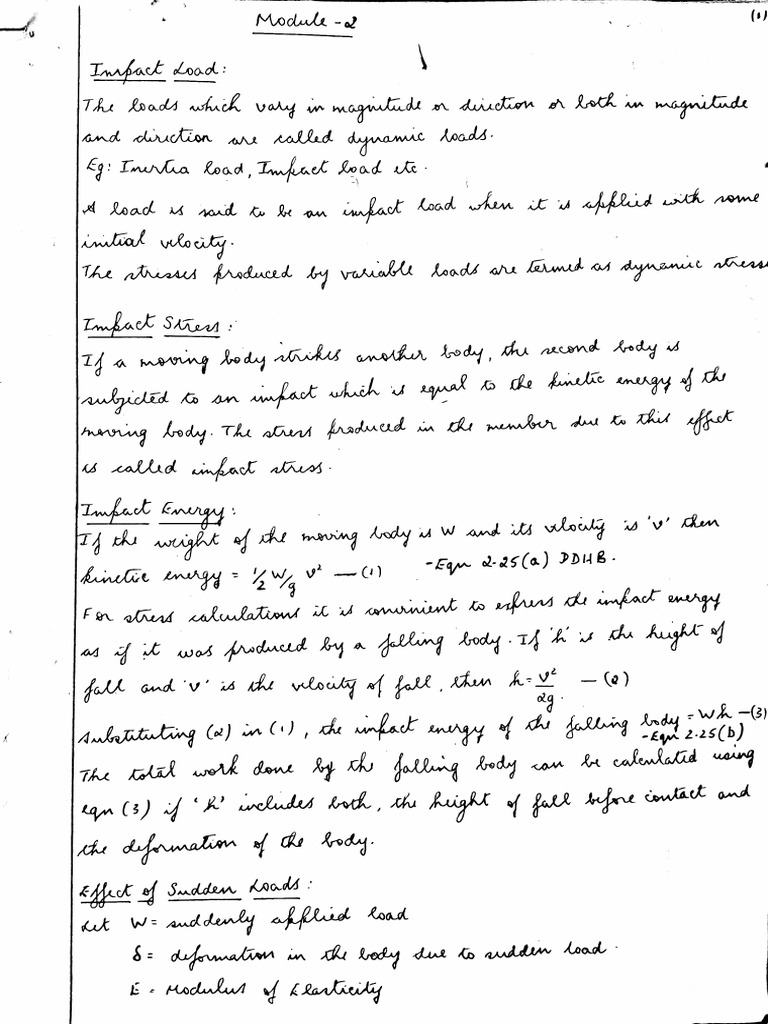 Module -2
(1)
Impact Load:
The loads which vary in magnitude or direction or both in magnitude
and direction are called dynamic loads.
Eg: Inertia load, Impact load etc.
A load is said to be an impact load when it is applied with some
initial velocity.
The stresses produced by variable loads are termed as dynamic stresse
Impact Stress:
If a moving body strikes another body, the second body is
subjected to an impact which is equal to the kinetic energy of the
moving body. The stress produced in the member due to this effect
is called impact stress.
Impact Energy:
If the weight of the moving body is W and its velocity is 'v' then
kinetic energy = 1/2 W/g v² — (1) - Eqn 2.25(a) DDHB.
For stress calculations it is convinient to express the impact energy
as if it was produced by a falling body. If 'h' is the height of
fall and 'v' is the velocity of fall, then h = v²/2g. — (2)
Substituting (2) in (1), the impact energy of the falling body = Wh — (3)
- Eqn 2.25(b)
The total work done by the falling body can be calculated using
eqn (3) if 'h' includes both, the height of fall before contact and
the deformation of the body.
Effect of Sudden Loads:
Let W = suddenly applied load
δ = deformation in the body due to sudden load.
E = Modulus of Elasticity